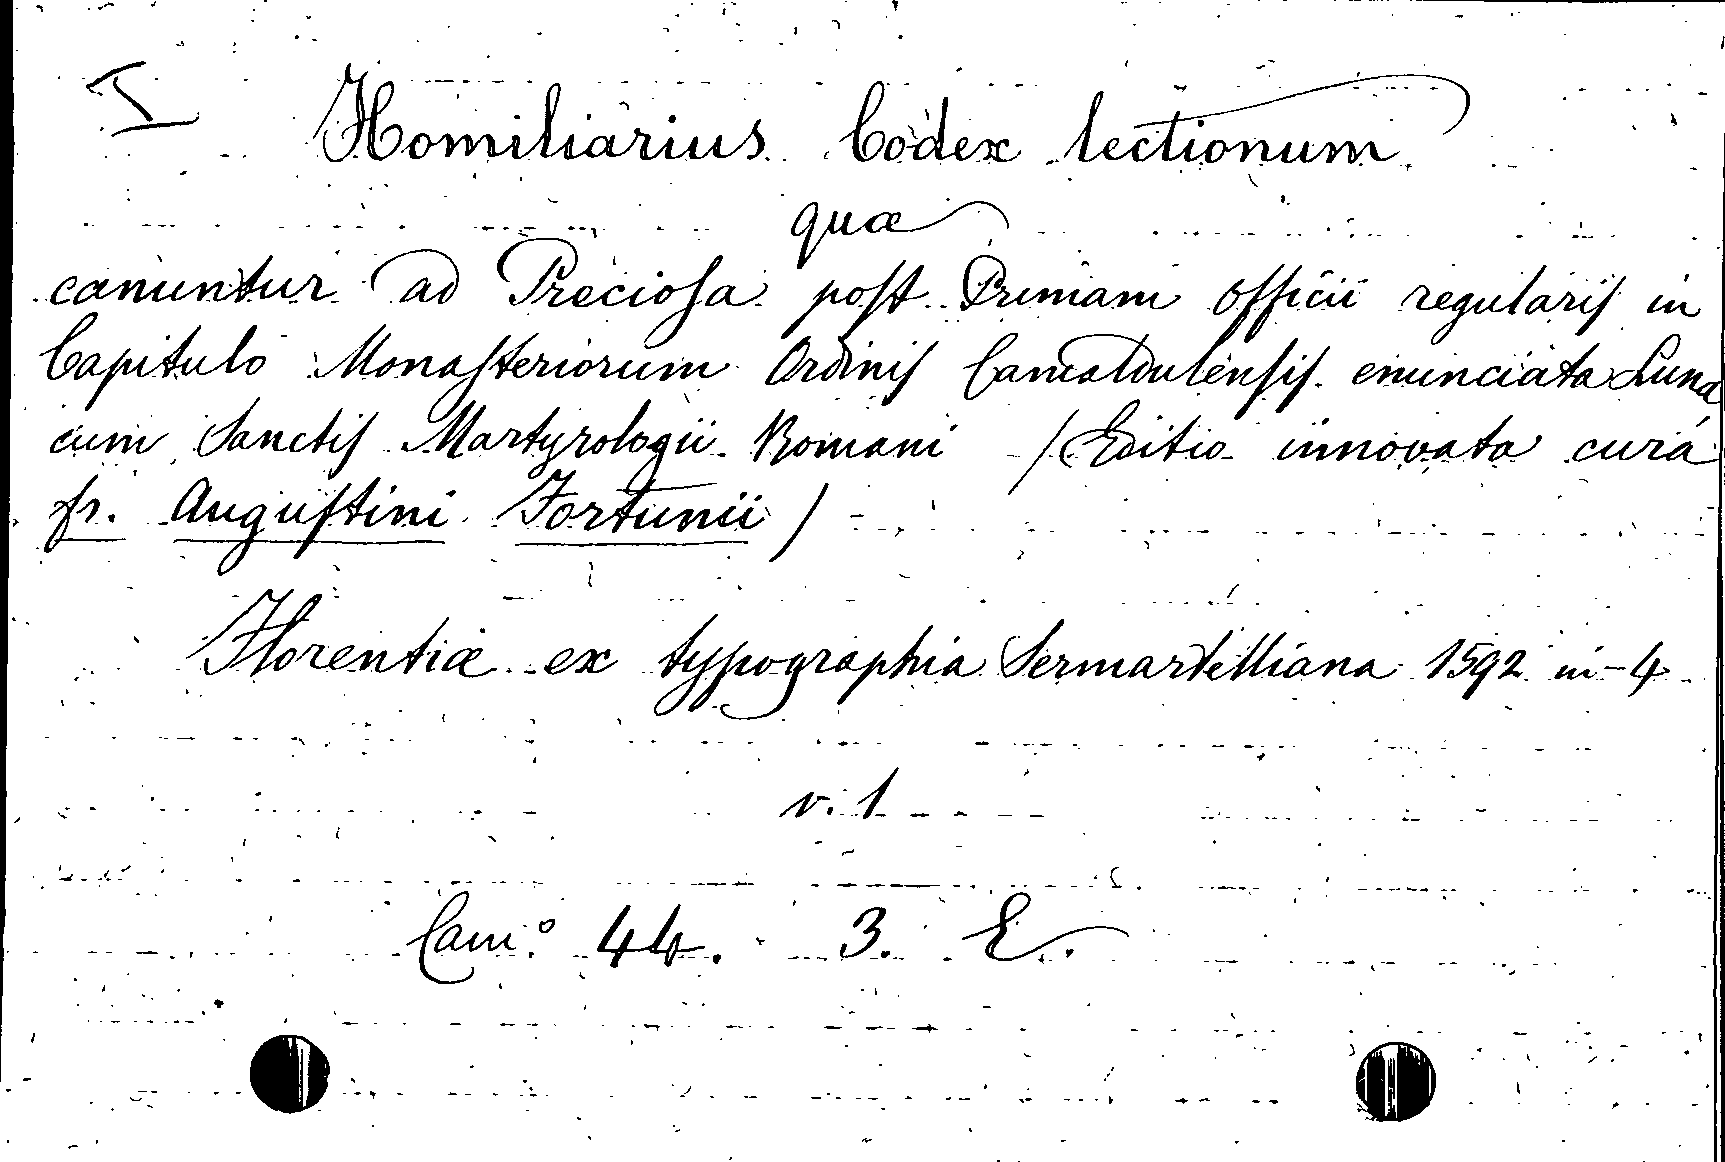 I
Homiliarius Codex lectionum
quæ
canuntur ad Preciosa post Primam officii regularis in
Capitulo Monasteriorum Ordinis Camaldulensis enunciata Luna,
cum Sanctis Martyrologii Romani /Editio innovata cura
fr. Augustini Fortunii/
Florentiæ ex typographia Sermartelliana 1592 in-4
v. 1
Cam.° 44. 3. E.